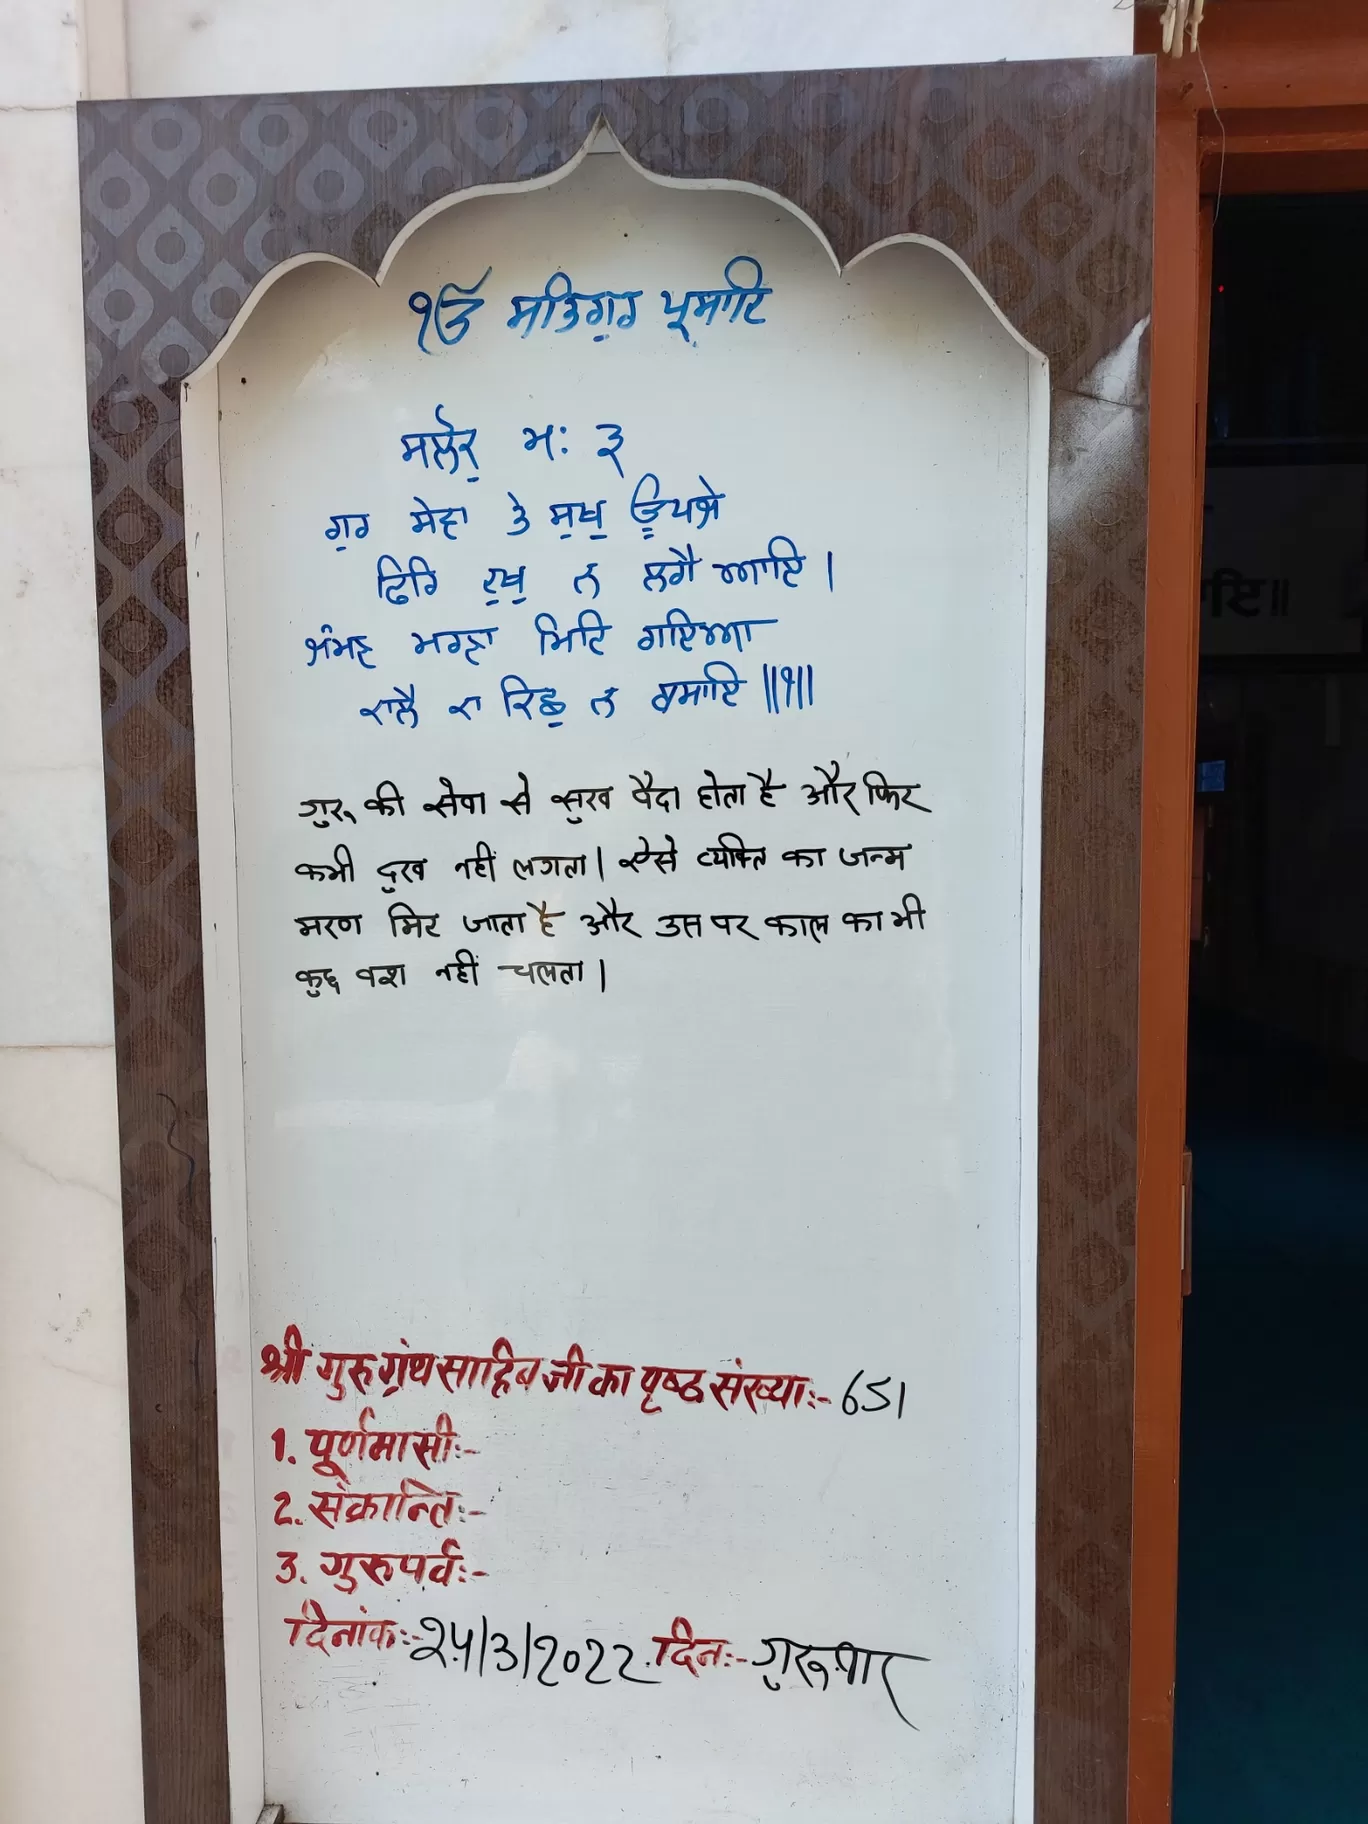 ੴ ਸਤਿਗੁਰ ਪ੍ਰਸਾਦਿ
ਸਲੋਕੁ ਮਃ ੩
ਗੁਰ ਸੇਵਾ ਤੇ ਸੁਖੁ ਊਪਜੇ
ਫਿਰਿ ਦੁਖੁ ਨ ਲਗੈ ਆਇ ।
ਜੰਮਣ ਮਰਣਾ ਮਿਟਿ ਗਇਆ
ਕਾਲੈ ਕਾ ਕਿਛੁ ਨ ਬਸਾਇ ॥੧॥
गुरू की सेवा से सुख पैदा होता है और फिर
कभी दुख नहीं लगता। ऐसे व्यक्ति का जन्म
मरण मिट जाता है और उस पर काल का भी
कुछ वश नहीं चलता।
श्री गुरु ग्रंथ साहिब जी का पृष्ठ संख्या:- 651
1. पूर्णमासी:-
2. संक्रान्ति:-
3. गुरुपर्व:-
दिनांक:- २५/3/2022. दिन:- गुरूवार
ਇ॥